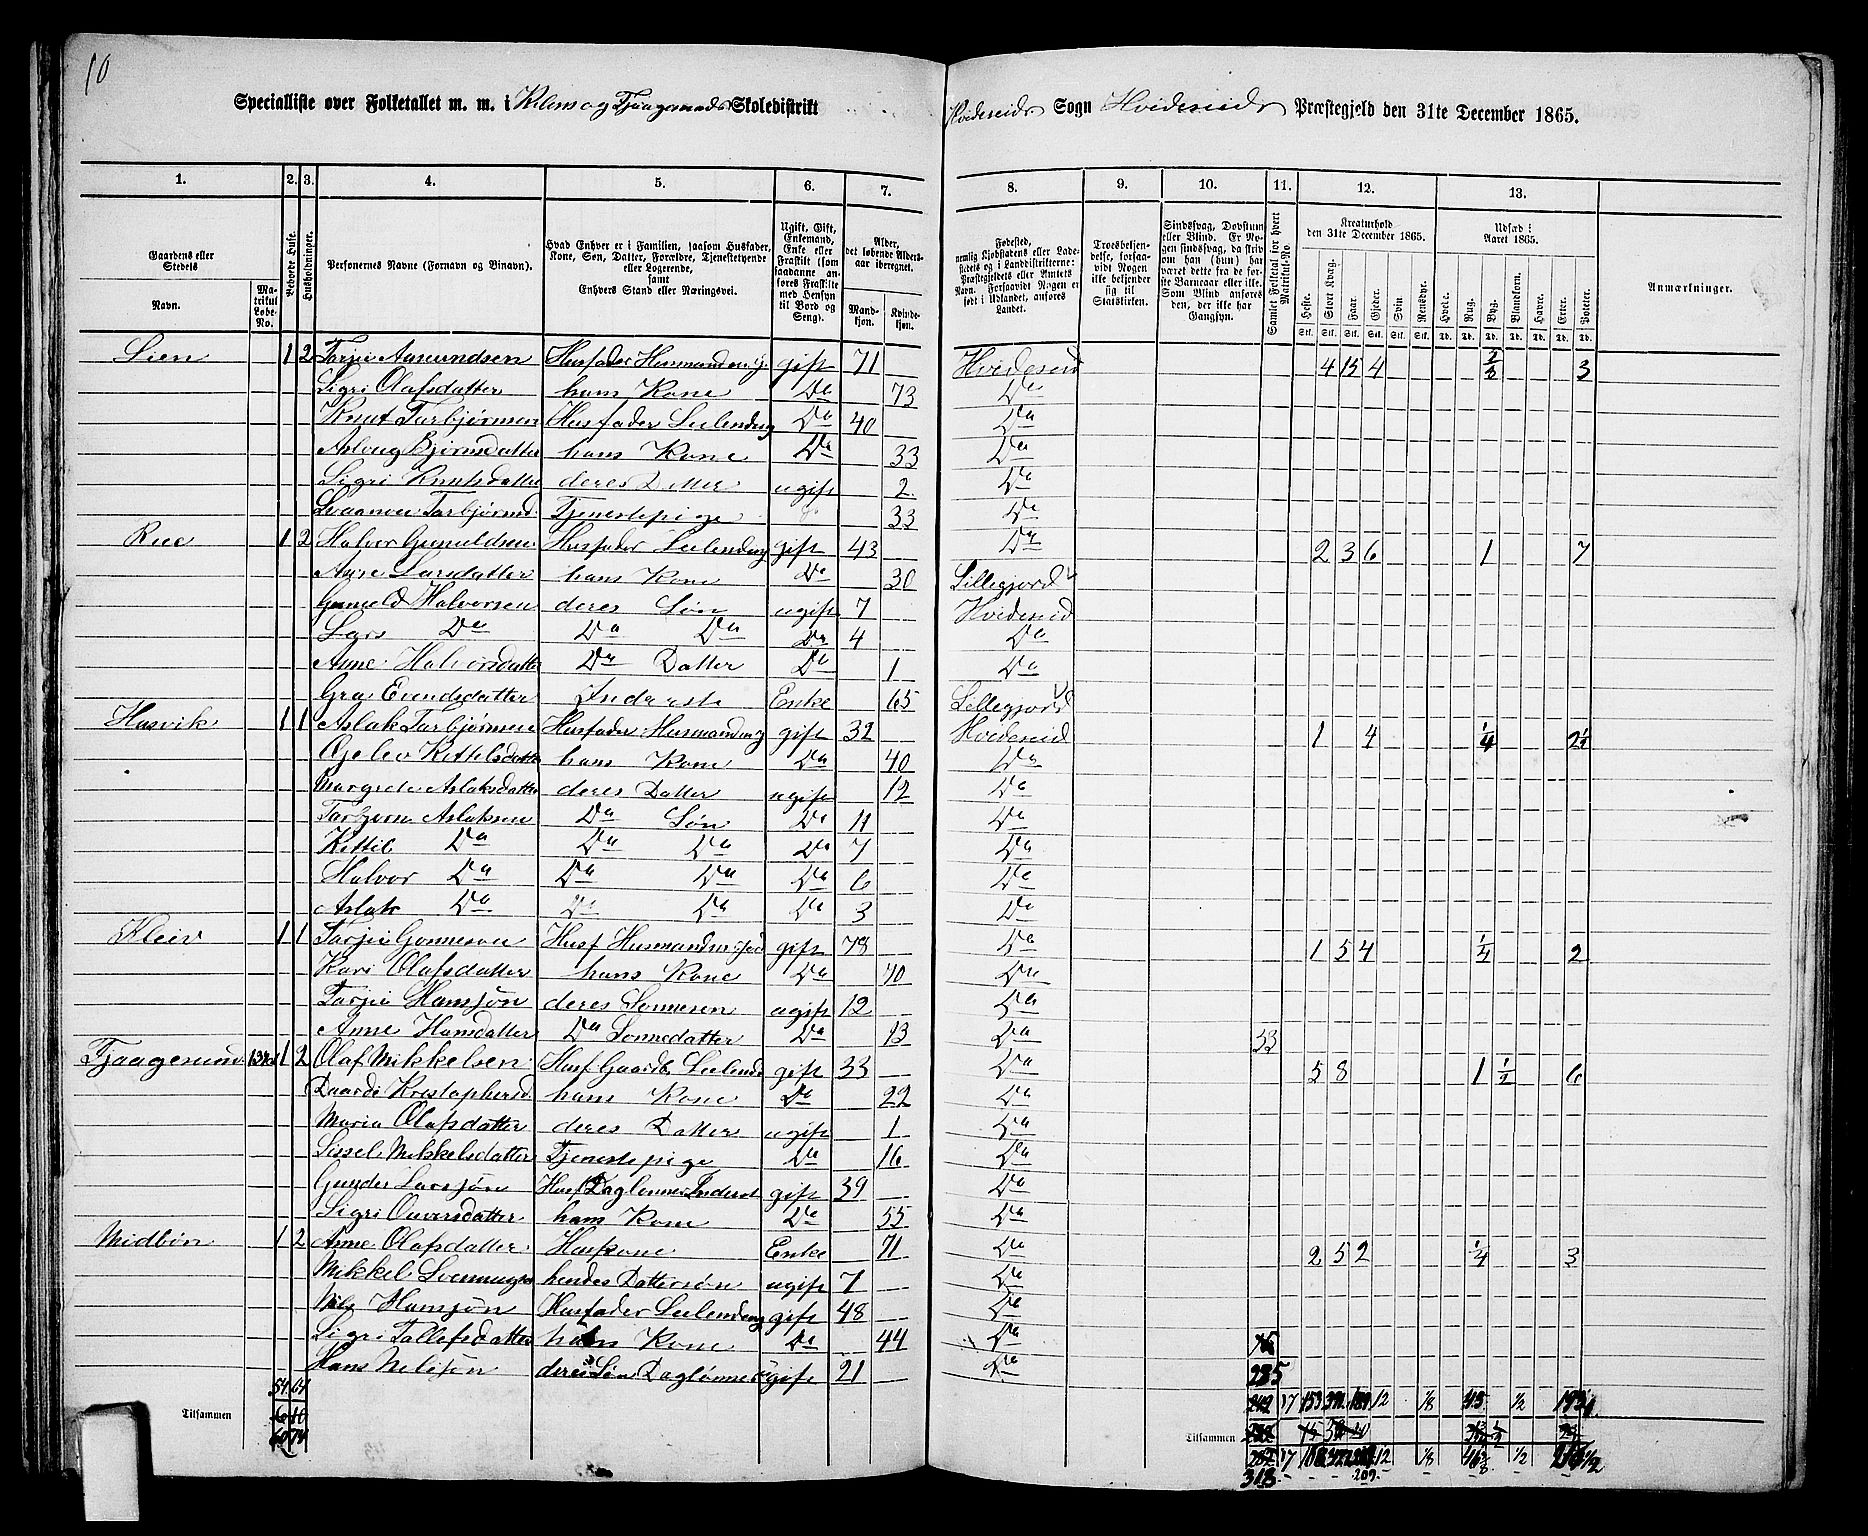 10
Specialliste over Folketallet m. m. i Klems og Tjaagesunds Skoledistrikt
Hvideseids Sogn Hvideseids Præstegjeld den 31te December 1865.
1. 2. 3. 4. 5. 6. 7. 8. 9. 10. 11. 12. 13.
Gaardens eller Stedets
Navn.
Matrikul Løbe-No.
Beboede Huse.
Husholdninger.
Personernes Navne (Fornavn og Binavn).
Hvad Enhver er i Familien, saasom Husfader, Kone, Søn, Datter, Forældre, Tjenestetyende eller Logerende, samt Enhvers Stand eller Næringsvei.
Ugift, Gift, Enkemand, Enke eller Fraskilt (som saadanne ansøres Fraskilte med Hensyn til Bord og Seng).
Alder, det løbende Aldersaar iberegnet.
Mandkjøn. Kvindekjøn.
Fødested, nemlig Kjøbstadens eller Ladestedets og i Landdistrikterne: Præstegjeldets eller Amtets Navn. Forsaavidt Nogen er født i Udlandet, anføres Landet.
Troesbekjendelse, forsaavidt Nogen ikke bekjender sig til Statskirken.
Sindssvag, Døvstum eller Blind. Er Nogen sindssvag, da skriv om han (hun) har været dette fra de første Barneaar eller ikke. Som Blind anføres den, der ikke har Gangsyn.
Samlet Folketal for hvert Matrikul-No
Kreaturhold den 31te December 1865.
Heste. Stort Kvæg. Faar. Gjeder. Svin. Rensdyr.
Udsæd i Aaret 1865.
Hvede. Rug. Byg. Blandkorn. Havre. Erter. Poteter.
Anmærkninger.
Lien 1 2 Tarjei Aasmundsen Husfader Husmand m. J. gift 71 Hvideseid 4 15 4 3
Sigri Olafsdatter hans Kone Do 73 Do
Knut Tarbjørnsen Husfader Leilending Do 40 Do
Aslaug Bjørnsdatter hans Kone Do 33 Do
Sigri Knutsdatter deres Datter ugift 2 Do
Tarbjørnsd. Tjenestepige 33 Do
Rue 1 2 Halvor Gunuldsen Husfader Leilending gift 43 Do 2 3 6 1 7
Anne Larsdatter hans Kone Do 30 Lillegjord
Gunuld Halvorsen deres Søn ugift 7 Hvideseid
Lars Do Do Do Do 4 Do
Anne Halvorsdatter Do Datter Do 1 Do
Gro Evendsdatter Inderst Enke 65 Lillegjord
Husvik 1 1 Aslak Tarbjørnsen Husfader Husmand m. J gift 32 Hvideseid 1 4 1/4 2 1/2
Gjelev Kettelsdatter hans Kone Do 40 Do
Margrete Aslaksdatter deres Datter ugift 12 Do
Tarbjørn Aslaksen Do Søn Do 11 Do
Kettil Do Do Do Do 7 Do
Halvor Do Do Do Do 6 Do
Aslak Do Do Do Do 3 Do
Kleiv 1 1 Tarjei Gonnesen Husf Husmand m: Jord gift 78 Do 1 5 4 1/4 2
Kari Olafsdatter hans Kone Do 70 Do
Tarjei Hansjøn deres Sønnesøn ugift 12 Do
Anne Hansdatter Do Sonnedatter Do 13 Do 33
Tjaagesund 137 1 2 Olaf Mikkelsen Husf Gaardb Leilend gift 33 Do 5 8 1 1/2 6
Daarde Kristophersd. hans Kone Do 22 Do
Maria Olafsdatter deres Datter ugift 1 Do
Sissel Mikkelsdatter Tjenestepige Do 16 Do
Gunder Larsjøn Husf Daglønner Inderst gift 39 Do
Sigri Onversdatter hans Kone Do 55 Do
Midbøn 1 2 Anne Olafsdatter Huskone Enke 71 Do 2 5 2 1/4 3
Mikkel hendes Dattersøn ugift 7 Do
Nils Hansjøn Husfader Leilending gift 48 Do
Sigri Tallefsdatter hans Kone Do 44 Do
Hans Nilsjøn deres Søn Daglønner ugift 21 Do
285
54 64
Tilsammen 6 10
60 74
17 153 12 1/8 1/2
Tilsammen
17 12 1/8 46 1/2
313 209